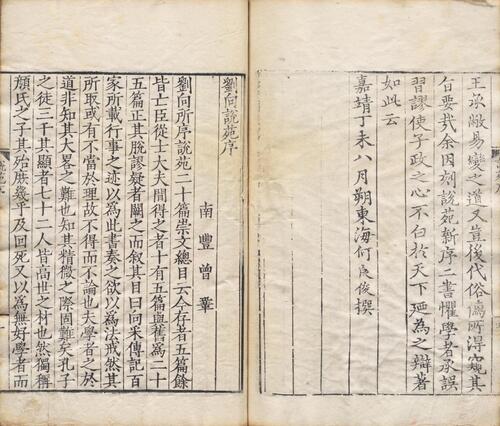 王承敝易變之道又豈後代俗儒所得窺其
旨要哉余因刻說苑新序二書懼學者承誤
習謬使子政之心不白於天下廼為之辯著
如此云
嘉靖丁未八月朔東海何良俊撰
劉向說苑序
南豐曾鞏
劉向所序說苑二十篇崇文總目云今存者五篇餘
皆亡臣從士大夫間得之者十有五篇與舊為二十
五篇正其脫謬疑者闕之而叙其目曰向采傳記百
家所載行事之迹以為此書奏之欲以為法戒然其
所取或有不當於理故不得而不論也夫學者之於
道非知其大略之難也知其精微之際固難矣孔子
之徒三千其顯者七十二人皆高世之材也然獨稱
顏氏之子其殆庶幾乎及回死又以為無好學者而